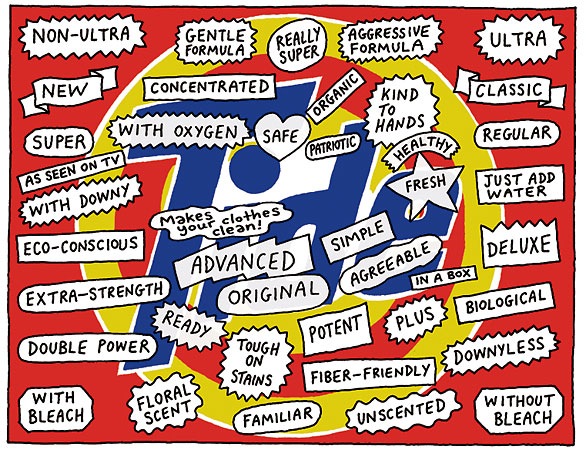 NON-ULTRA
GENTLE
FORMULA
REALLY
SUPER
AGGRESSIVE
FORMULA
ULTRA
NEW
CONCENTRATED
ORGANIC
KIND
TO
HANDS
CLASSIC
SUPER
WITH OXYGEN
SAFE
PATRIOTIC
HEALTHY
REGULAR
AS SEEN ON TV
WITH DOWNY
FRESH
JUST ADD
WATER
Makes
your clothes
clean!
ECO-CONSCIOUS
ADVANCED
SIMPLE
AGREEABLE
DELUXE
IN A BOX
EXTRA-STRENGTH
ORIGINAL
BIOLOGICAL
READY
POTENT
PLUS
DOUBLE POWER
TOUGH
ON
STAINS
FIBER-FRIENDLY
DOWNYLESS
WITH
BLEACH
FLORAL
SCENT
FAMILIAR
UNSCENTED
WITHOUT
BLEACH
Tide